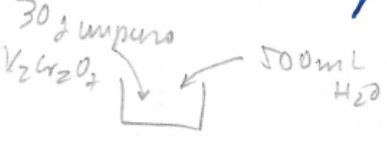 30 g impuro
K2Cr2O7
500mL
H2O